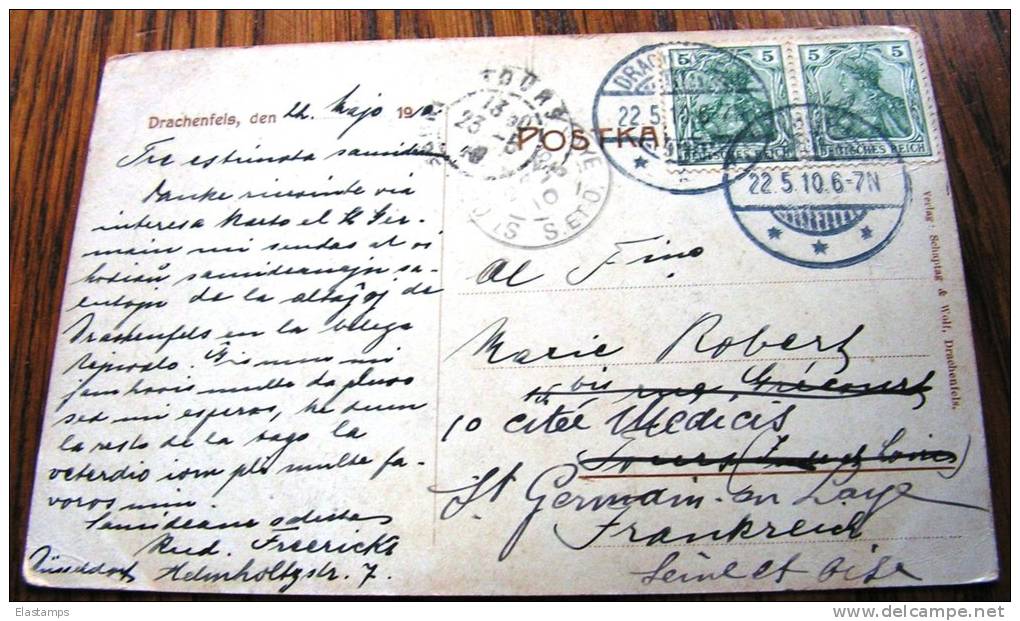 Drachenfels, den 22. Majo 1910
Tre estimata samideano
Danke ricevinte vian
interesa karto el St Ger-
main mi sendas al vi
samideanajn sa-
lutojn de la altaĵoj de
Drachenfels en la
Ĝis nun mi
jam havis multe da pluvo
sed mi esperas, ke dum
la resto de la tago la
veterdio iom pli multe fa-
voros min.
Samideane salutas
Rud. Freericks
Düsseldorf Helmholtzstr. 7.
POSTKA
TOURS
13
23 - 5
S. ET O.
DRAC
22.5.10.6-7N
22.5.10.6-7N
5
5
DEUTSCHES REICH
DEUTSCHES REICH
Al Fino
Marie Robert
bis rue Grécourt
10 citée Médicis
Tours
St Germain-en Laye
Frankreich
Seine et Oise
Verlag: Schaptag & Wolf, Drachenfels.
Elastamps
www.delcampe.net